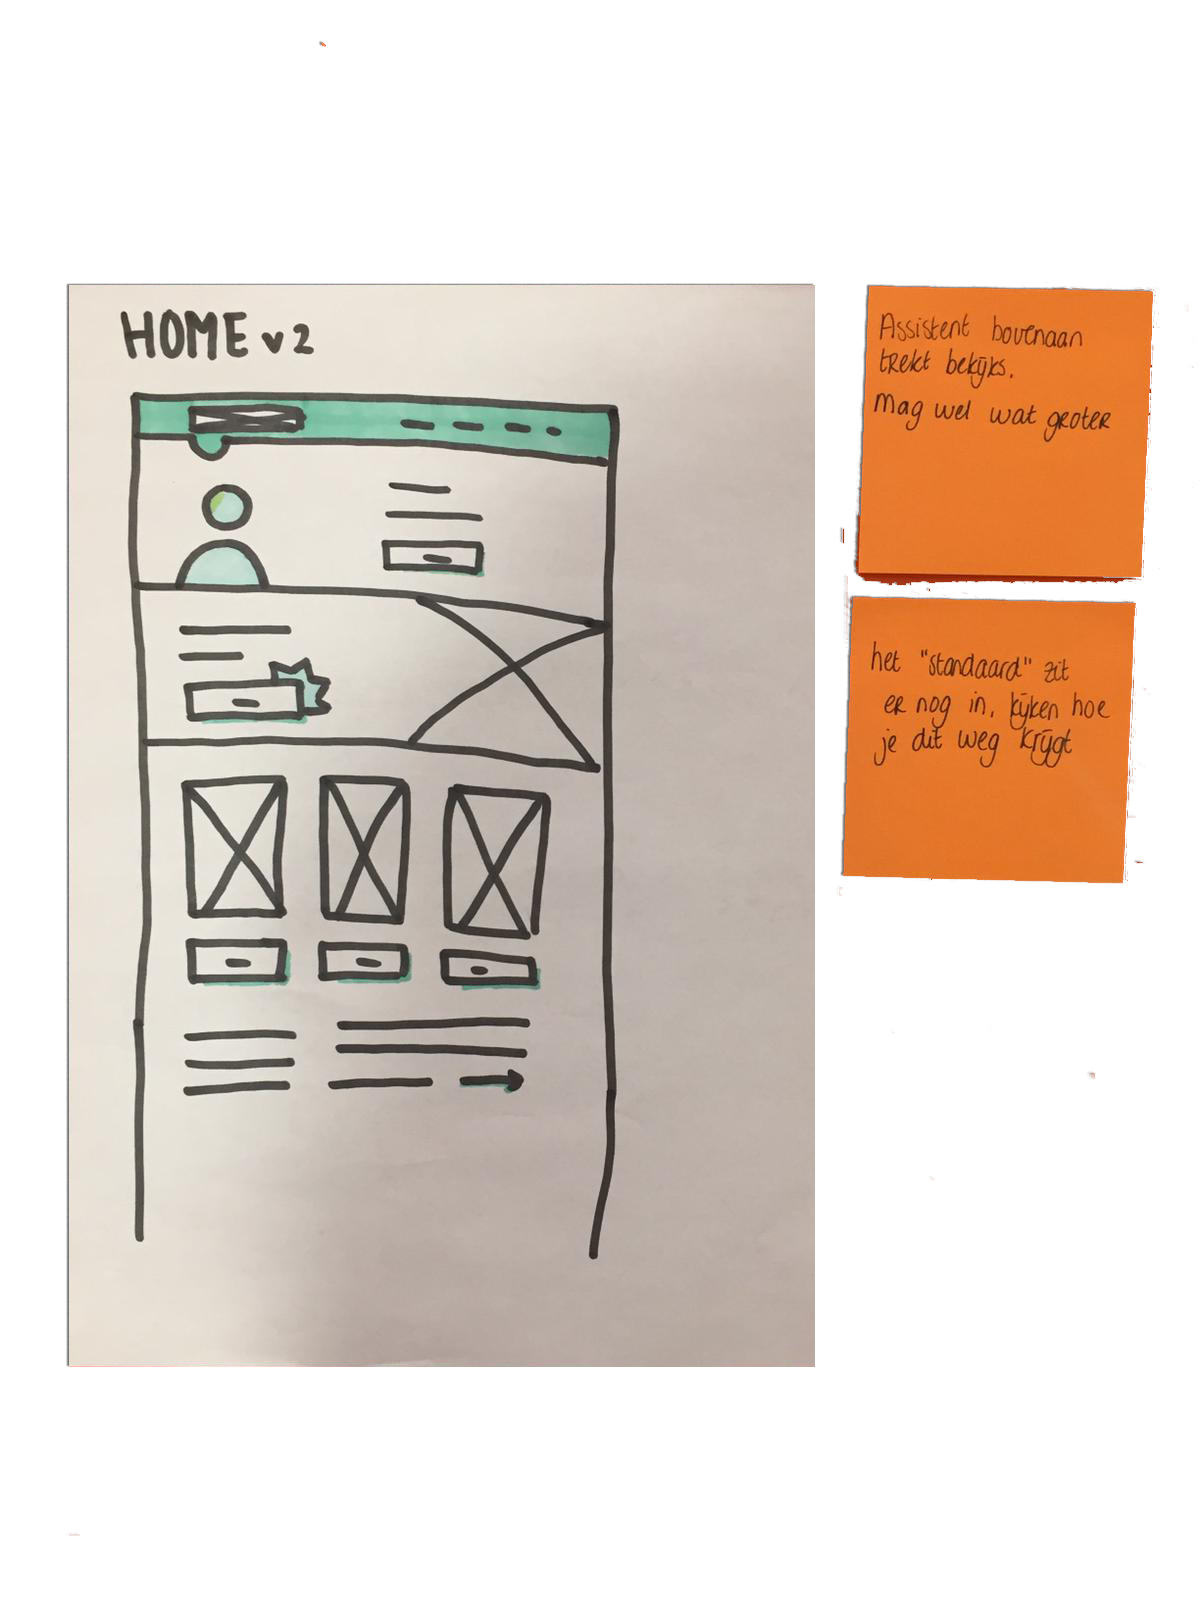 HOME v2
Assistent bovenaan
trekt bekijks.
Mag wel wat groter
het "standaard" zit
er nog in, kijken hoe
je dit weg krijgt